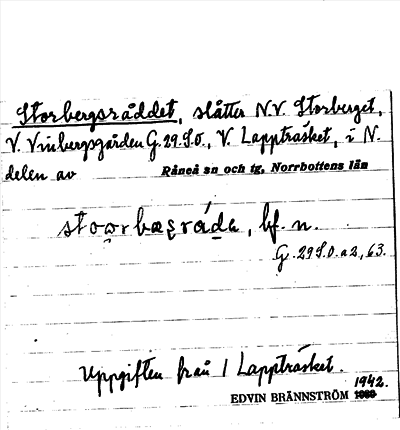 Storbergsråddet, slåtter N.V. Storberget,
V. Vinbergsgården G.29.S.0., V. Lappträsket, i N.
delen av Råneå sn och tg, Norrbottens län
bf. n.
G. 29 S.0. a 2, 63.
Uppgiften från 1 Lappträsket.
1942.
EDVIN BRÄNNSTRÖM